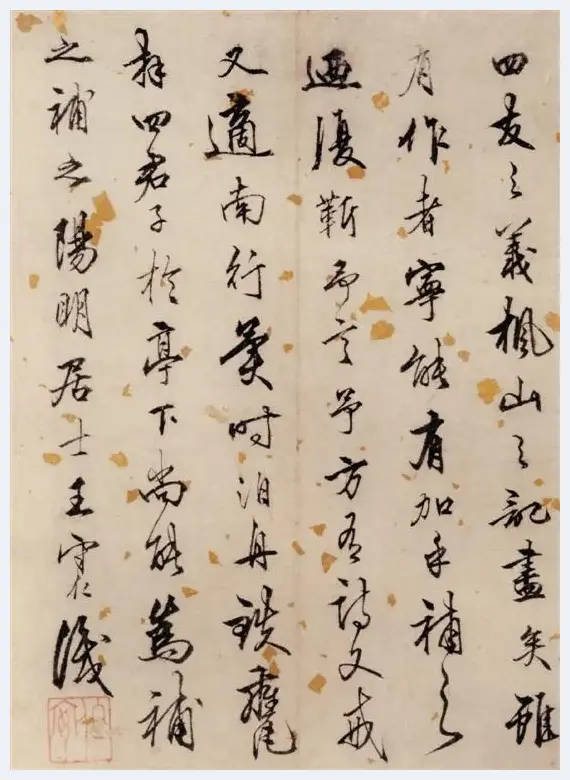 四友之義楓山之記盡矣雖
有作者寧能有加乎補之
迺復靳予言予方有詩文戒
又適南行異時泊舟鉄甕
拜四君子於亭下尚能為補
之補之陽明居士王守仁識